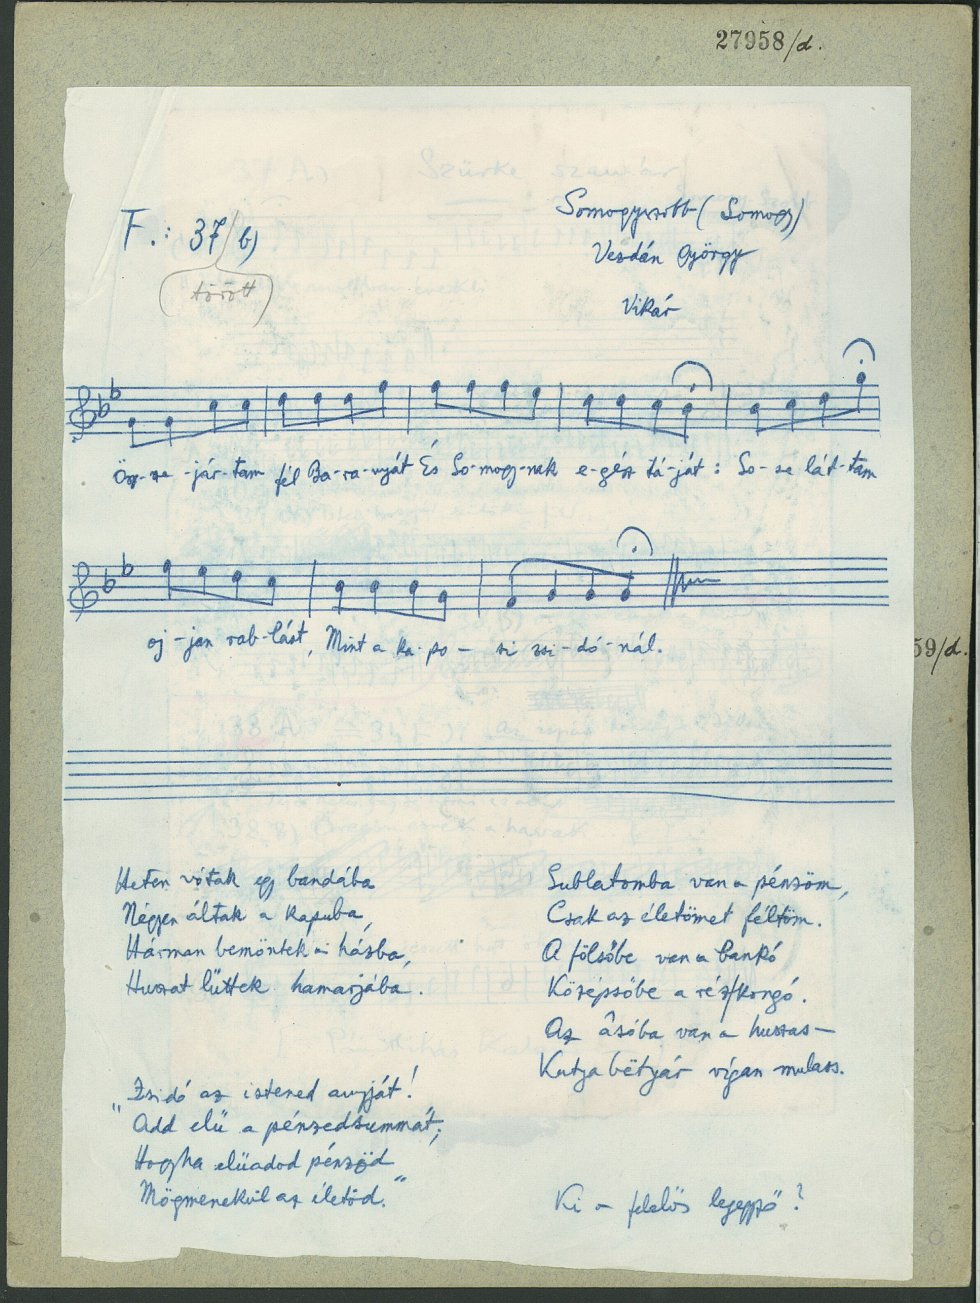 27958/d.
Somogyszobb (Somogy)
F.: 37/b)
Vezdán György
törött
Vikár
Ösz-sze-jár-tam fél Ba-ra-nyát És So-mogy-nak e-gész tá-ját: So-se lát-tam
oj-jan rab-lást, Mint a ka-po-si zsi-dó-nál.
59/d.
Heten vótak egy bandába
Négyen áltak a kapuba,
Hárman bemöntek a házba,
Huszat lüttek hamarjába.
„Zsidó az istened anyját!
Add elü a pénzedsummát;
Hogyha elüadod pénzöd
Mögmenekül az életöd."
Sublatomba van a pénzöm,
Csak az életömet féltöm.
A fölsőbe van a bankó
Középsőbe a rézkongó.
Az âsóba van a huszas—
Kutya bëtyár vígan mulass.
Ki a felelős